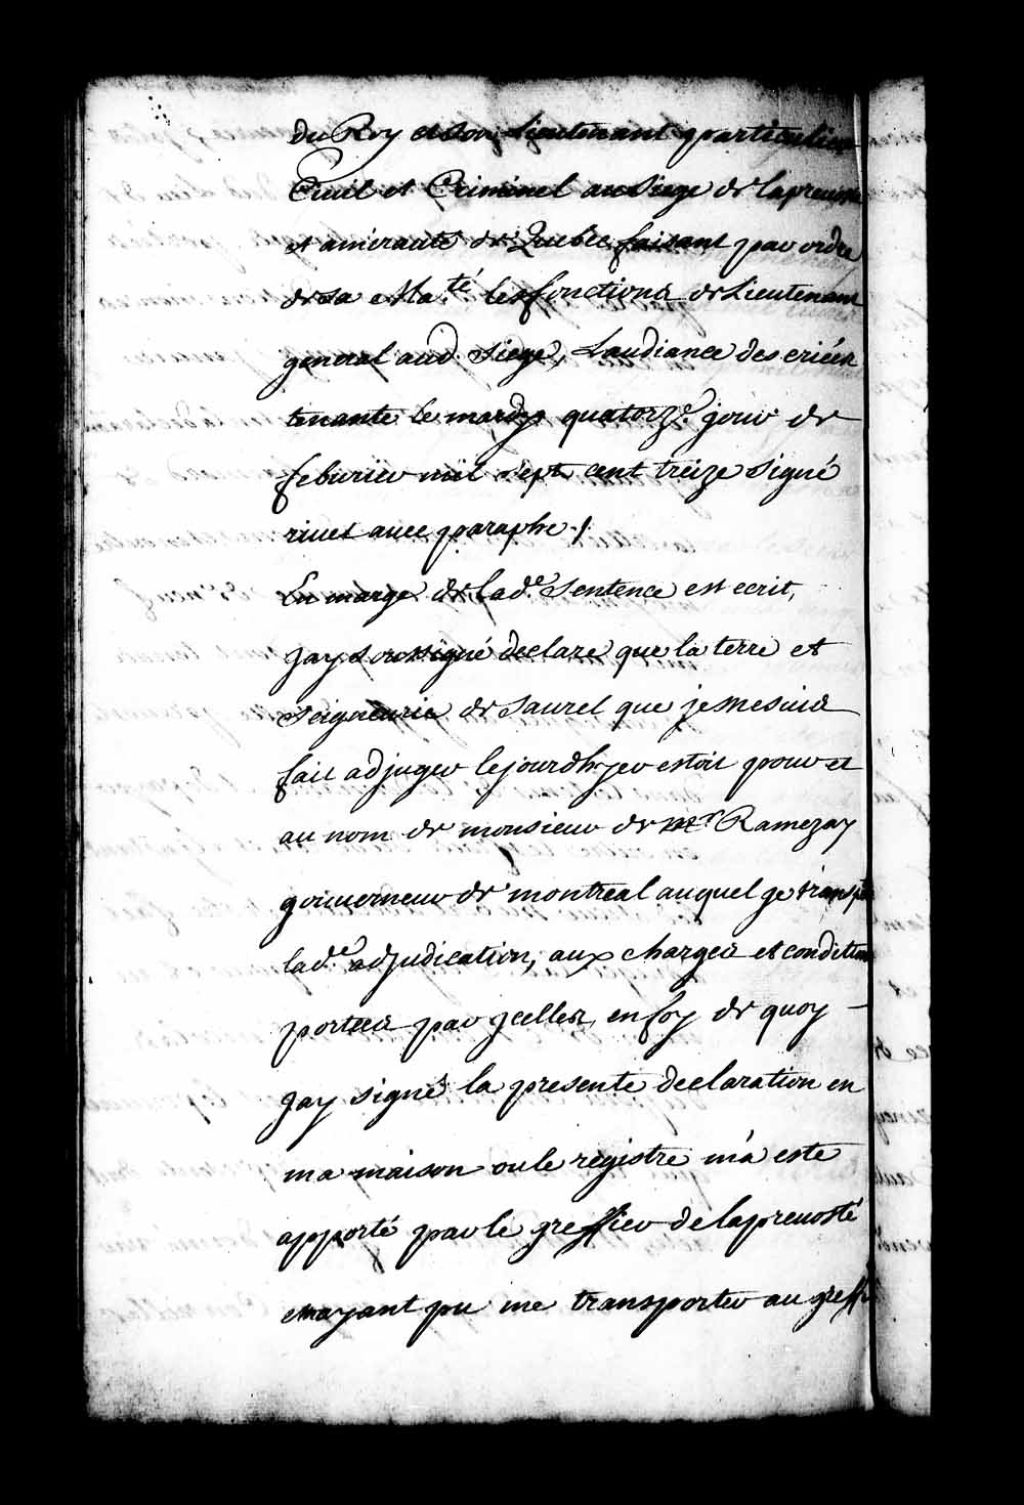 du Roy et son Lieutenant particulier
Ciuil et Criminel au siege de la preuosté
et amirauté de Quebec faisant par ordre
de sa Ma.té les fonctions de Lieutenant
general aud. siege, Laudiance des criées
tenante le mardy quatorze. jour de
feburier mil sept cent treize signé
riuet auec paraphe ./.
En marge de lad.e Sentence est ecrit,
Jay soussigné declare que la terre et
seigneurie de saurel que je me suis
fait adjuger le jourdhuy estoit pour et
au nom de monsieur de Ramezay
gouuerneur de montreal auquel je
lad.e adjudication, aux charges et condition
portées par jcelles, en foy de quoy
Jay signé la presente declaration en
ma maison ou le registre m'a este
apporté par le greffier de la preuosté
nayant pu me transporter au greffe